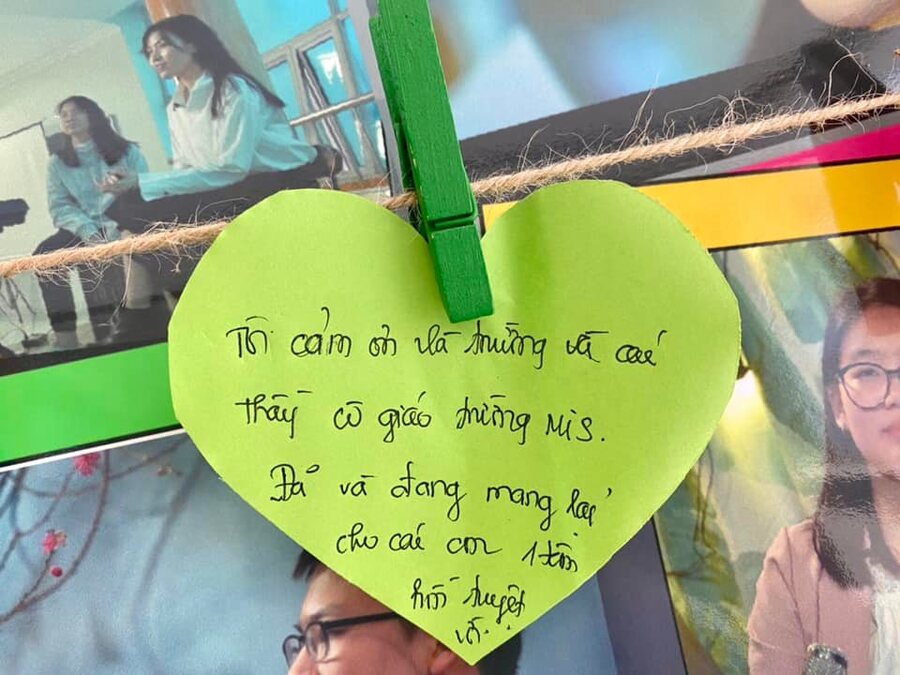 Tôi cảm ơn nhà trường và các
thầy cô giáo trường MIS.
Đã và đang mang lại
cho các con 1 tâm
hồn tuyệt
vời.